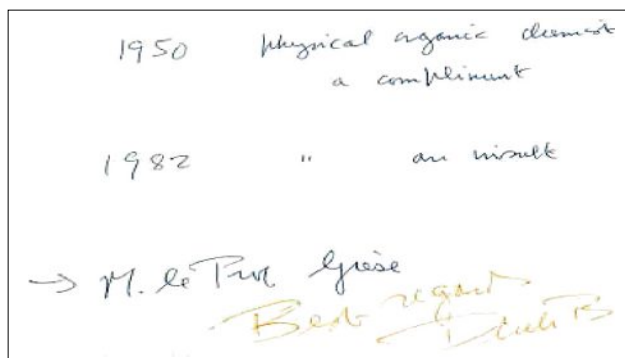 1950 physical organic chemist
a compliment
1982 " an insult
→ M. le Prof Giese
Best regards
Derek B